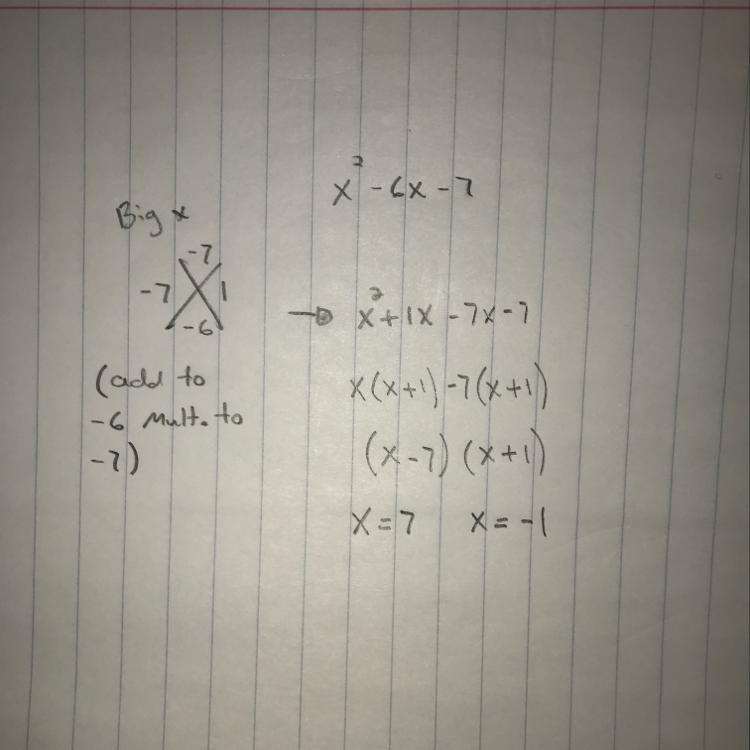 x² - 6x - 7
Big x
-7
-7 1
-6
(add to
-6 Mult. to
-7)
→ x² + 1x - 7x - 7
x(x+1) -7(x+1)
(x-7) (x+1)
x = 7 x = -1